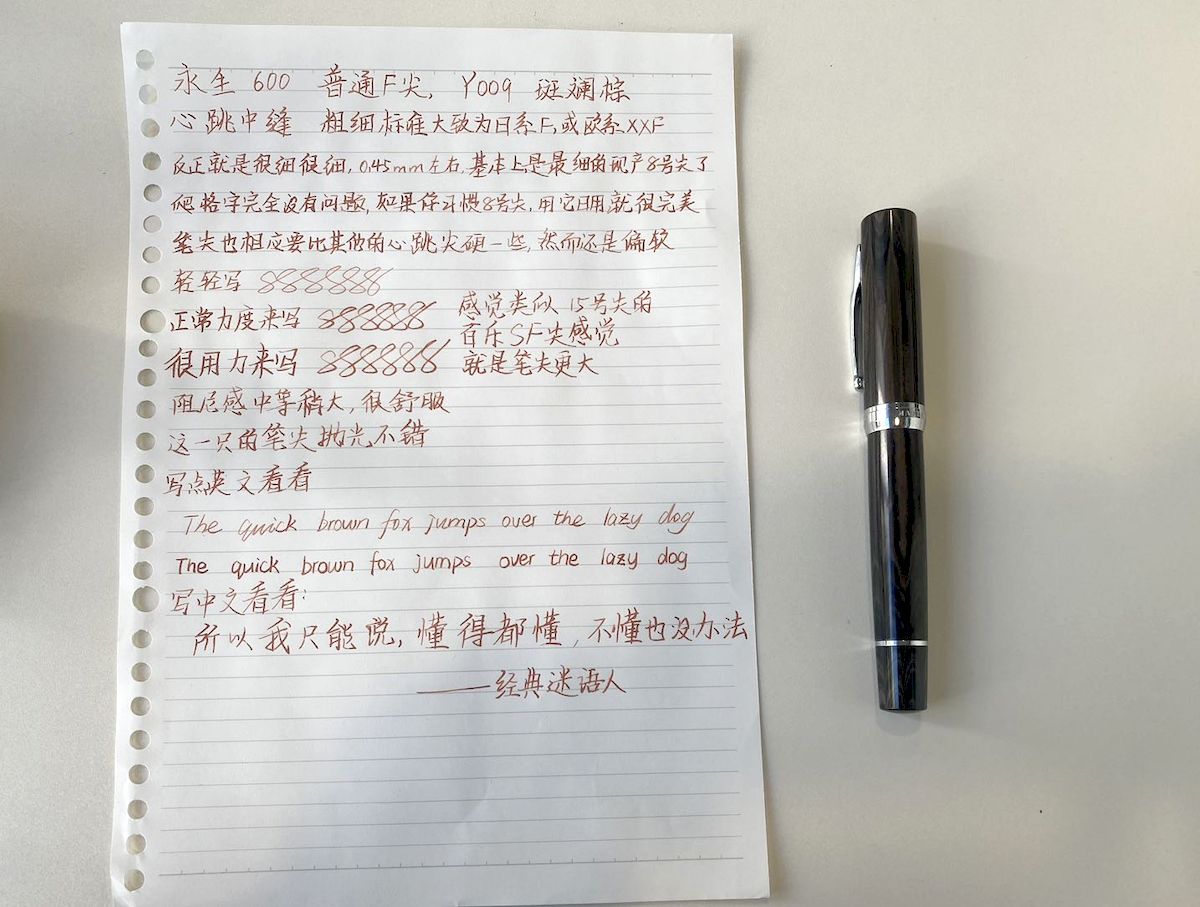 永生 600 普通F尖, Y009 斑斓棕
心跳中缝 粗细标准大致为日系F,或欧系XXF
反正就是很细很细, 0.45mm左右,基本上是最细的现产8号尖了
爬格字完全没有问题, 如果你习惯8号尖, 用它日用就很完美
笔尖也相应要比其他的心跳尖硬一些, 然而还是偏软
轻轻写 888888
正常力度来写 888888
很用力来写 888888
感觉类似 15号尖的
百乐SF尖感觉
就是笔尖更大
阻尼感中等稍大, 很舒服
这一只的笔尖抛光不错
写点英文看看
The quick brown fox jumps over the lazy dog
The quick brown fox jumps over the lazy dog
写中文看看:
所以我只能说, 懂得都懂, 不懂也没办法
——经典迷语人